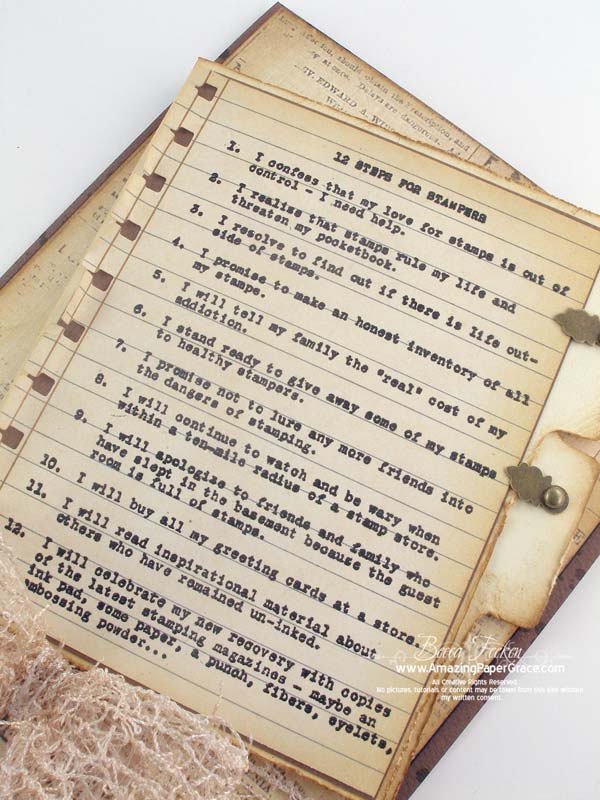 should obtain the Prescription, and
at once. Delays are dangerous.
EV. EDWARD A.
12 STEPS FOR STAMPERS
1. I confess that my love for stamps is out of
control - I need help.
2. I realize that stamps rule my life and
threaten my pocketbook.
3. I resolve to find out if there is life out-
side of stamps.
4. I promise to make an honest inventory of all
my stamps.
5. I will tell my family the "real" cost of my
addiction.
6. I stand ready to give away some of my stamps
to healthy stampers.
7. I promise not to lure any more friends into
the dangers of stamping.
8. I will continue to watch and be wary when
within a ten-mile radius of a stamp store.
9. I will apologize to friends and family who
have slept in the basement because the guest
room is full of stamps.
10. I will buy all my greeting cards at a store.
11. I will read inspirational material about
others who have remained un-inked.
12. I will celebrate my new recovery with copies
of the latest stamping magazines - maybe an
ink pad, some paper, a punch, fibers, eyelets,
embossing powder...
Becca Feeken
www.AmazingPaperGrace.com
All Creative Rights Reserved.
No pictures, tutorials or content may be taken from this site without
my written consent.